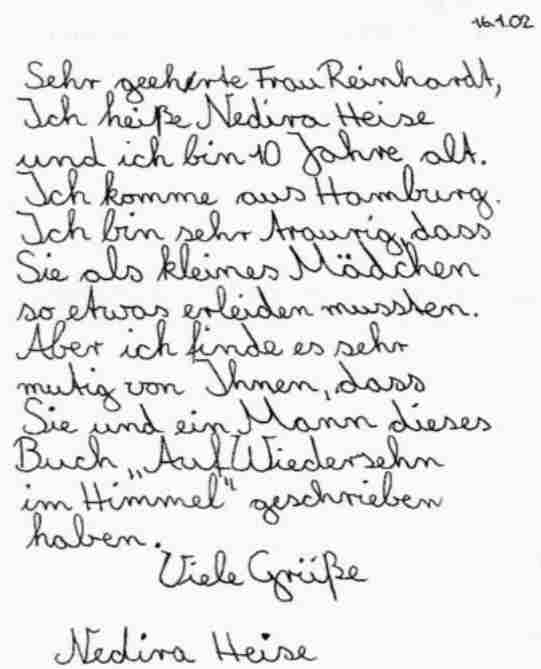 16.1.02
Sehr geehrte Frau Reinhardt,
Ich heiße Nedira Heise
und ich bin 10 Jahre alt.
Ich komme aus Hamburg.
Ich bin sehr traurig, dass
Sie als kleines Mädchen
so etwas erleiden mussten.
Aber ich finde es sehr
mutig von Ihnen, dass
Sie und ein Mann dieses
Buch „Auf Wiedersehn
im Himmel" geschrieben
haben.
Viele Grüße
Nedira Heise